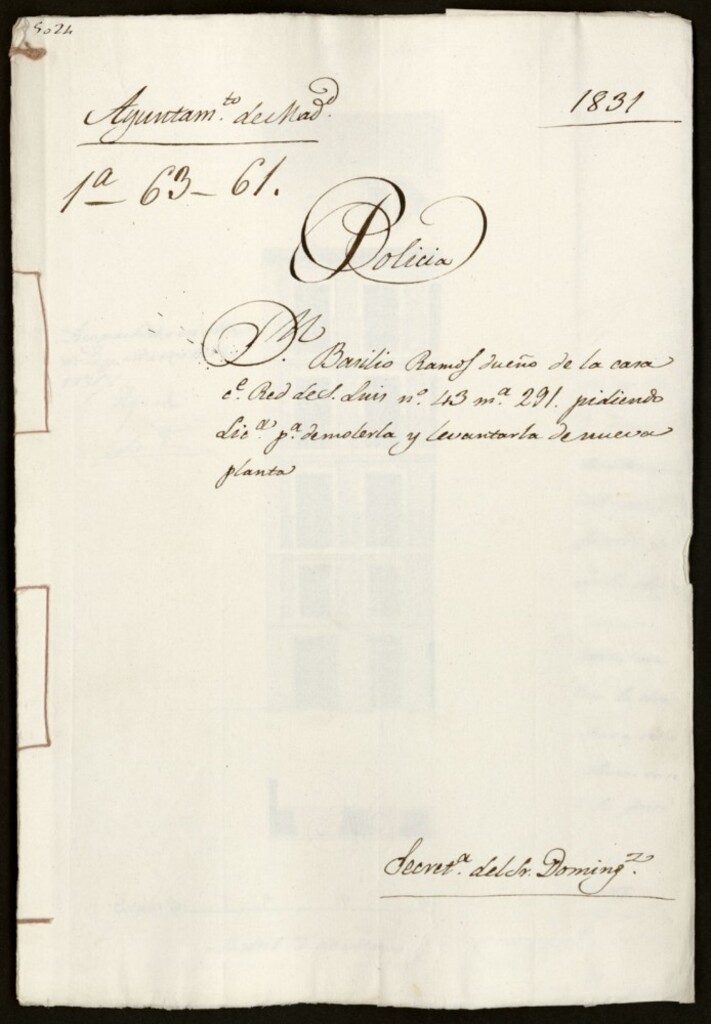 5024
Ayuntam.to de Mad.d
1831
1a 63-61.
Policia
D.n Basilio Ramos dueño de la casa
c.e Red de S. Luis n.o 43 m.a 291. pidiendo
Lic.a p.a demolerla y levantarla de nueva
planta
Secret.a del Sr. Doming.z